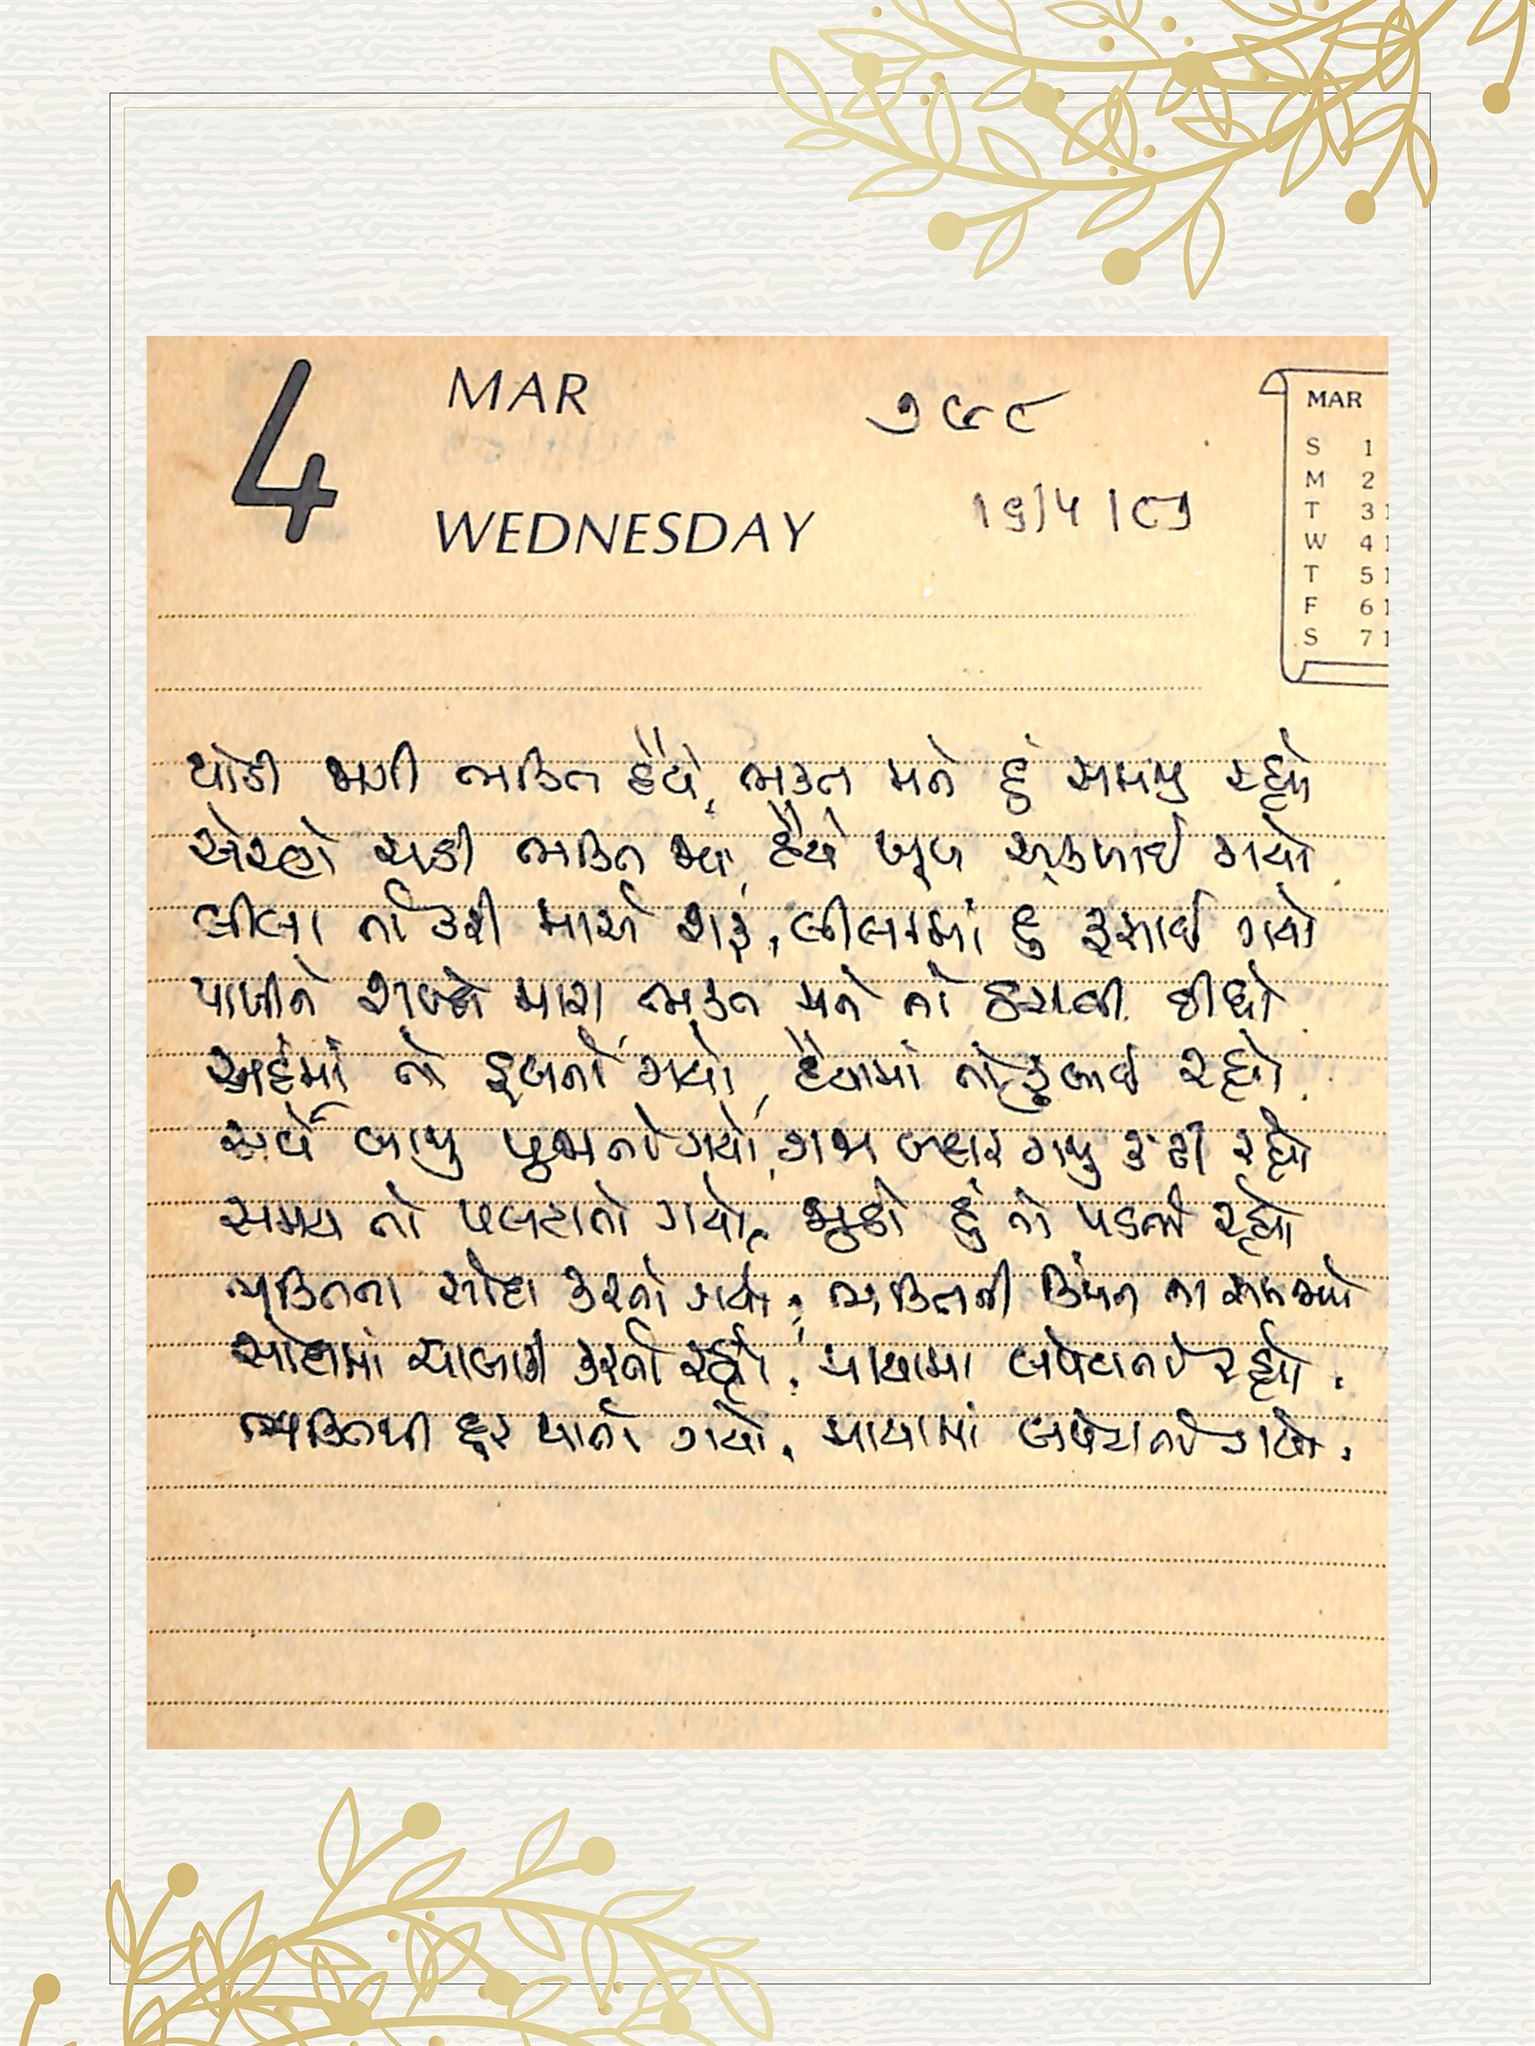 4
MAR
WEDNESDAY
૭૯૮
MAR
S 1
M 2
T 3 1
W 4 1
T 5 1
F 6 1
S 7 1
થોડી જાગી ભક્તિ હૈયે, ભક્ત મને હું સમજી રહ્યો
ચડી ભક્તિ જ્યાં હૈયે ખૂબ અકળાઈ ગયો
લીલા તો તેરી મારી શરૂ, લીલામાં હું ફસાઈ ગયો
પામીને શાબ્દો મારા ભક્ત મને તો ઠરાવી દીધો
અહંમાં તો ડૂબતો ગયો, હૈયામાં તો રહ્યો
સર્વે બાજુ પૂજાતો ગયો, ગજ બહાર ગજુ રહ્યો
સમય તો પલટાતો ગયો, જુઠો હું તો પડતો રહ્યો
ભક્તિના સોદા કરતો ગયો, ભક્તિની કિંમત ના સમજ્યો
સોદામાં ચાલાકી કરતો રહ્યો, માયામાં લપેટાતો રહ્યો.
ભક્તિથી દૂર થાતો ગયો, માયામાં લપેટાતો ગયો.